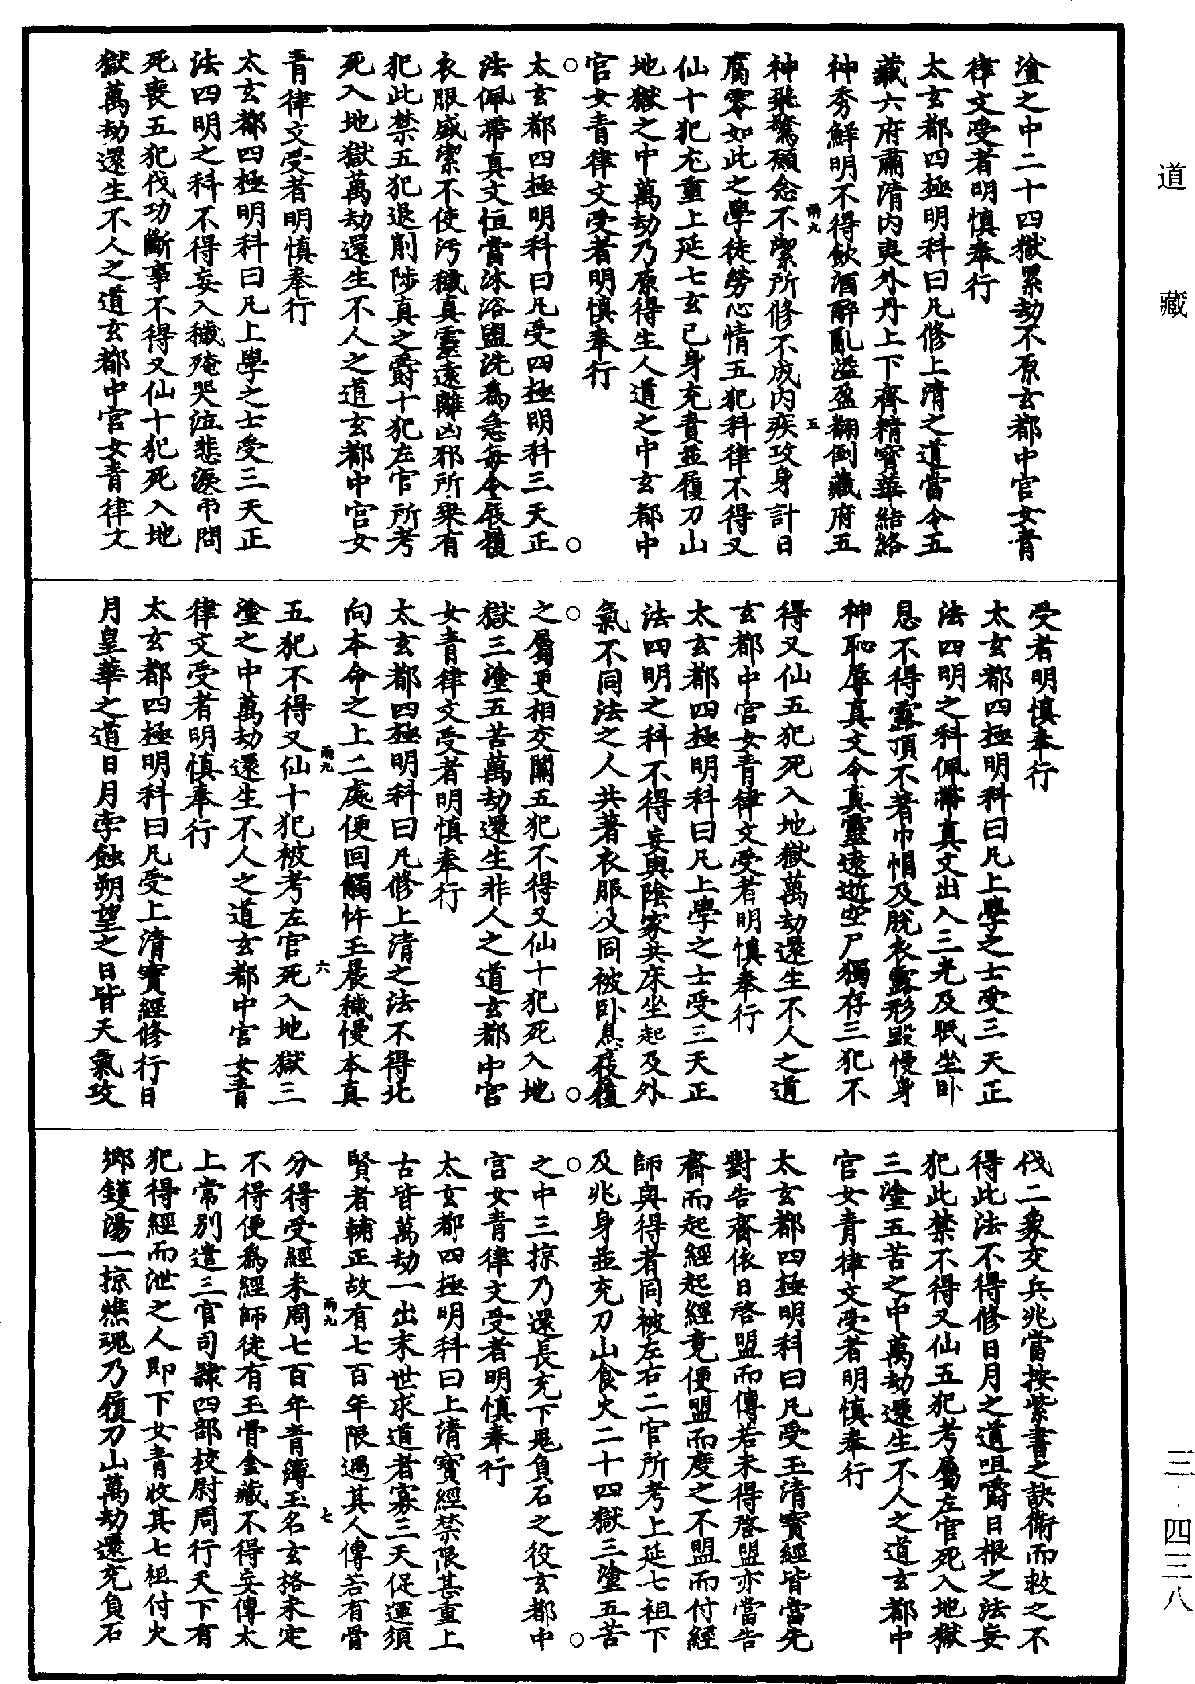 塗之中二十四獄累劫不原玄都中宮女青
律文受者明慎奉行
太玄都四極明科曰凡修上清之道當令五
藏六府肅清內夷外丹上下齊精寶華結絡
神秀鮮明不得飲酒醉亂溢盈翻倒藏府五
神飛驚願念不潔所修不成內疾攻身計日
腐零如此之學徒勞心情五犯科律不得又
仙十犯充重上延七玄已身充責並履刀山
地獄之中萬劫乃原得生人道之中玄都中
官女青律文受者明慎奉行
太玄都四極明科曰凡受四極明科三天正
法佩帶真文恒當沐浴盥洗為急每令展襆
衣服盛潔不使汚穢真靈遠離凶邪所乘有
犯此禁五犯退削陟真之爵十犯左官所考
死入地獄萬劫還生不人之道玄都中宮女
青律文受者明慎奉行
太玄都四極明科曰凡上學之士受三天正
法四明之科不得妄入穢殗哭泣悲淚弔問
死喪五犯伐功斷事不得又仙十犯死入地
獄萬劫還生不人之道玄都中官女青律文
受者明慎奉行
太玄都四極明科曰凡上學之士受三天正
法四明之科佩帶真文出入三光及眠坐卧
息不得露頂不著巾帽及脫衣露形毀慢身
神恥辱真文令真靈遠逝空尸獨存三犯不
得又仙五犯死入地獄萬劫還生不人之道
玄都中宮女青律文受者明慎奉行
太玄都四極明科曰凡上學之士受三天正
法四明之科不得妄與陰家共床坐起及外
氣不同法之人共著衣服及同被卧息履襆
之屬更相交關五犯不得又仙十犯死入地
獄三塗五苦萬劫還生非人之道玄都中宮
女青律文受者明慎奉行
太玄都四極明科曰凡修上清之法不得北
向本命之上二處便回觸忤玉晨穢慢本真
五犯不得又仙十犯被考左官死入地獄三
塗之中萬劫還生不人之道玄都中宮女青
律文受者明慎奉行
太玄都四極明科曰凡受上清寶經修行日
月皇華之道日月孛蝕朔望之日皆天氣攻
伐二象交兵兆當按紫書之訣術而救之不
得此法不得修日月之道咀嚼日根之法妄
犯此禁不得又仙五犯考屬左官死入地獄
三塗五苦之中萬劫還生不人之道玄都中
官女青律文受者明慎奉行
太玄都四極明科曰凡受玉清寶經皆當先
對告齋依日啓盟而傳若未得啓盟亦當告
齋而起經起經竟便盟而度之不盟而付經
師與得者同被左右二官所考上延七祖下
及兆身並充刀山食火二十四獄三塗五苦
之中三掠乃還長充下鬼負石之役玄都中
宮女青律文受者明慎奉行
太玄都四極明科曰上清寶經禁限甚重上
古皆萬劫一出末世求道者寡三天促運須
賢者輔正故有七百年限遇其人傳若有骨
分得受經未周七百年青簿玉名玄格未定
不得便為經師徒有玉骨金藏不得妄傳太
上常別遣三官司隸四部校尉周行天下有
犯得經而泄之人即下女青收其七祖付火
鄉鑊湯一掠燋魂乃履刀山萬劫還充負石
雨九
五
雨九
六
雨九
七
道藏
三·四三八